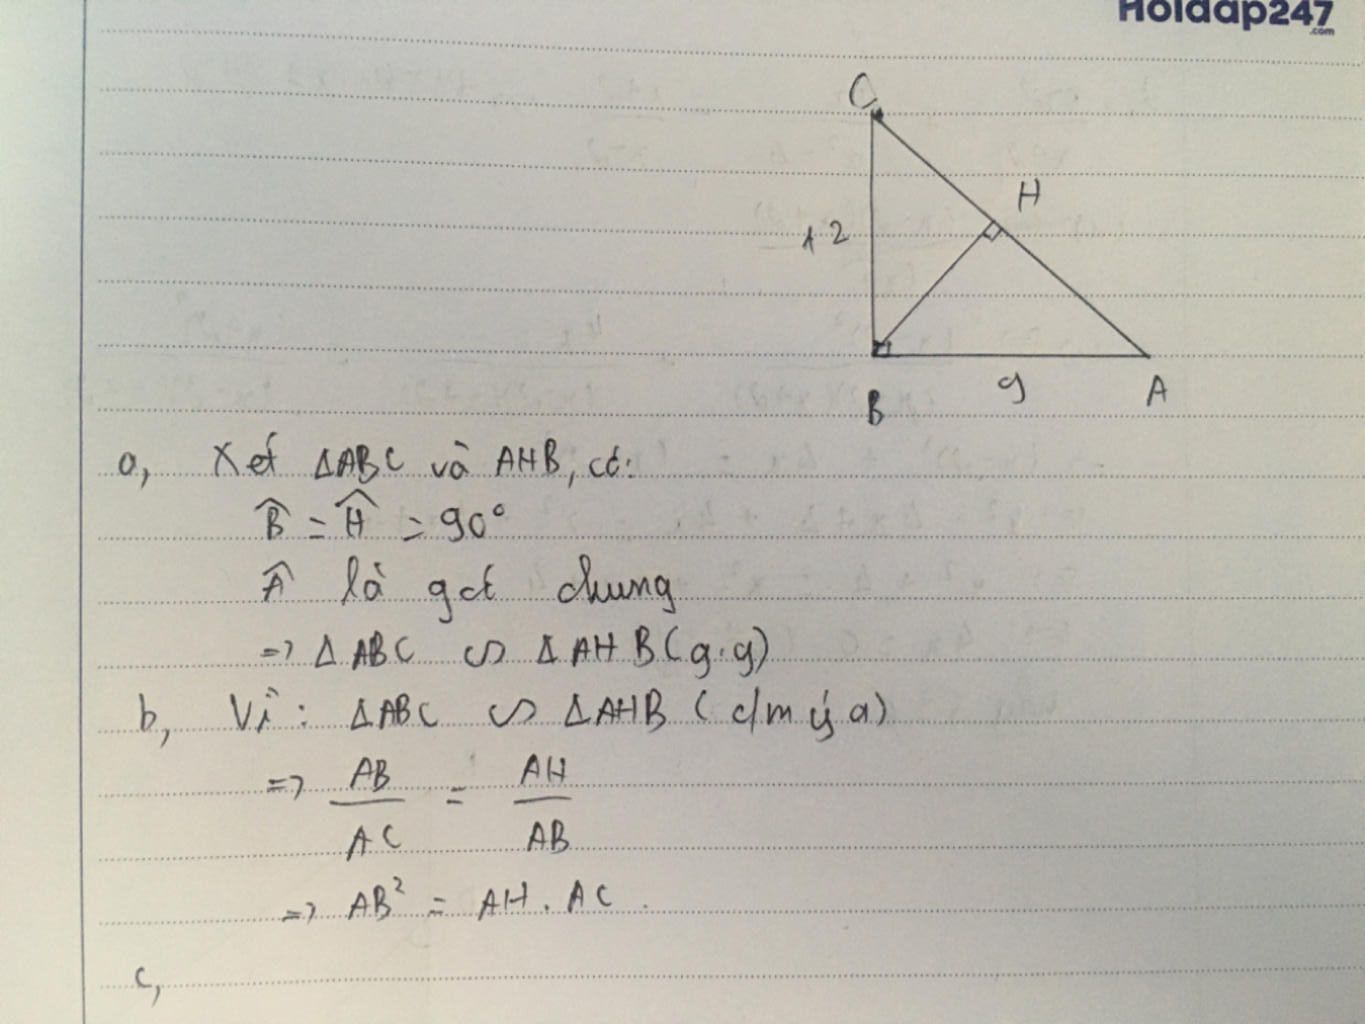 Holdap247
.com
C
H
12
B
9
A
a, Xét ΔABC và AHB, có:
B̂ = Ĥ = 90°
Â là góc chung
=> ΔABC ∽ ΔAHB (g.g)
b, Vì: ΔABC ∽ ΔAHB (c/m ý a)
=> AB/AC = AH/AB
=> AB² = AH . AC .
c,